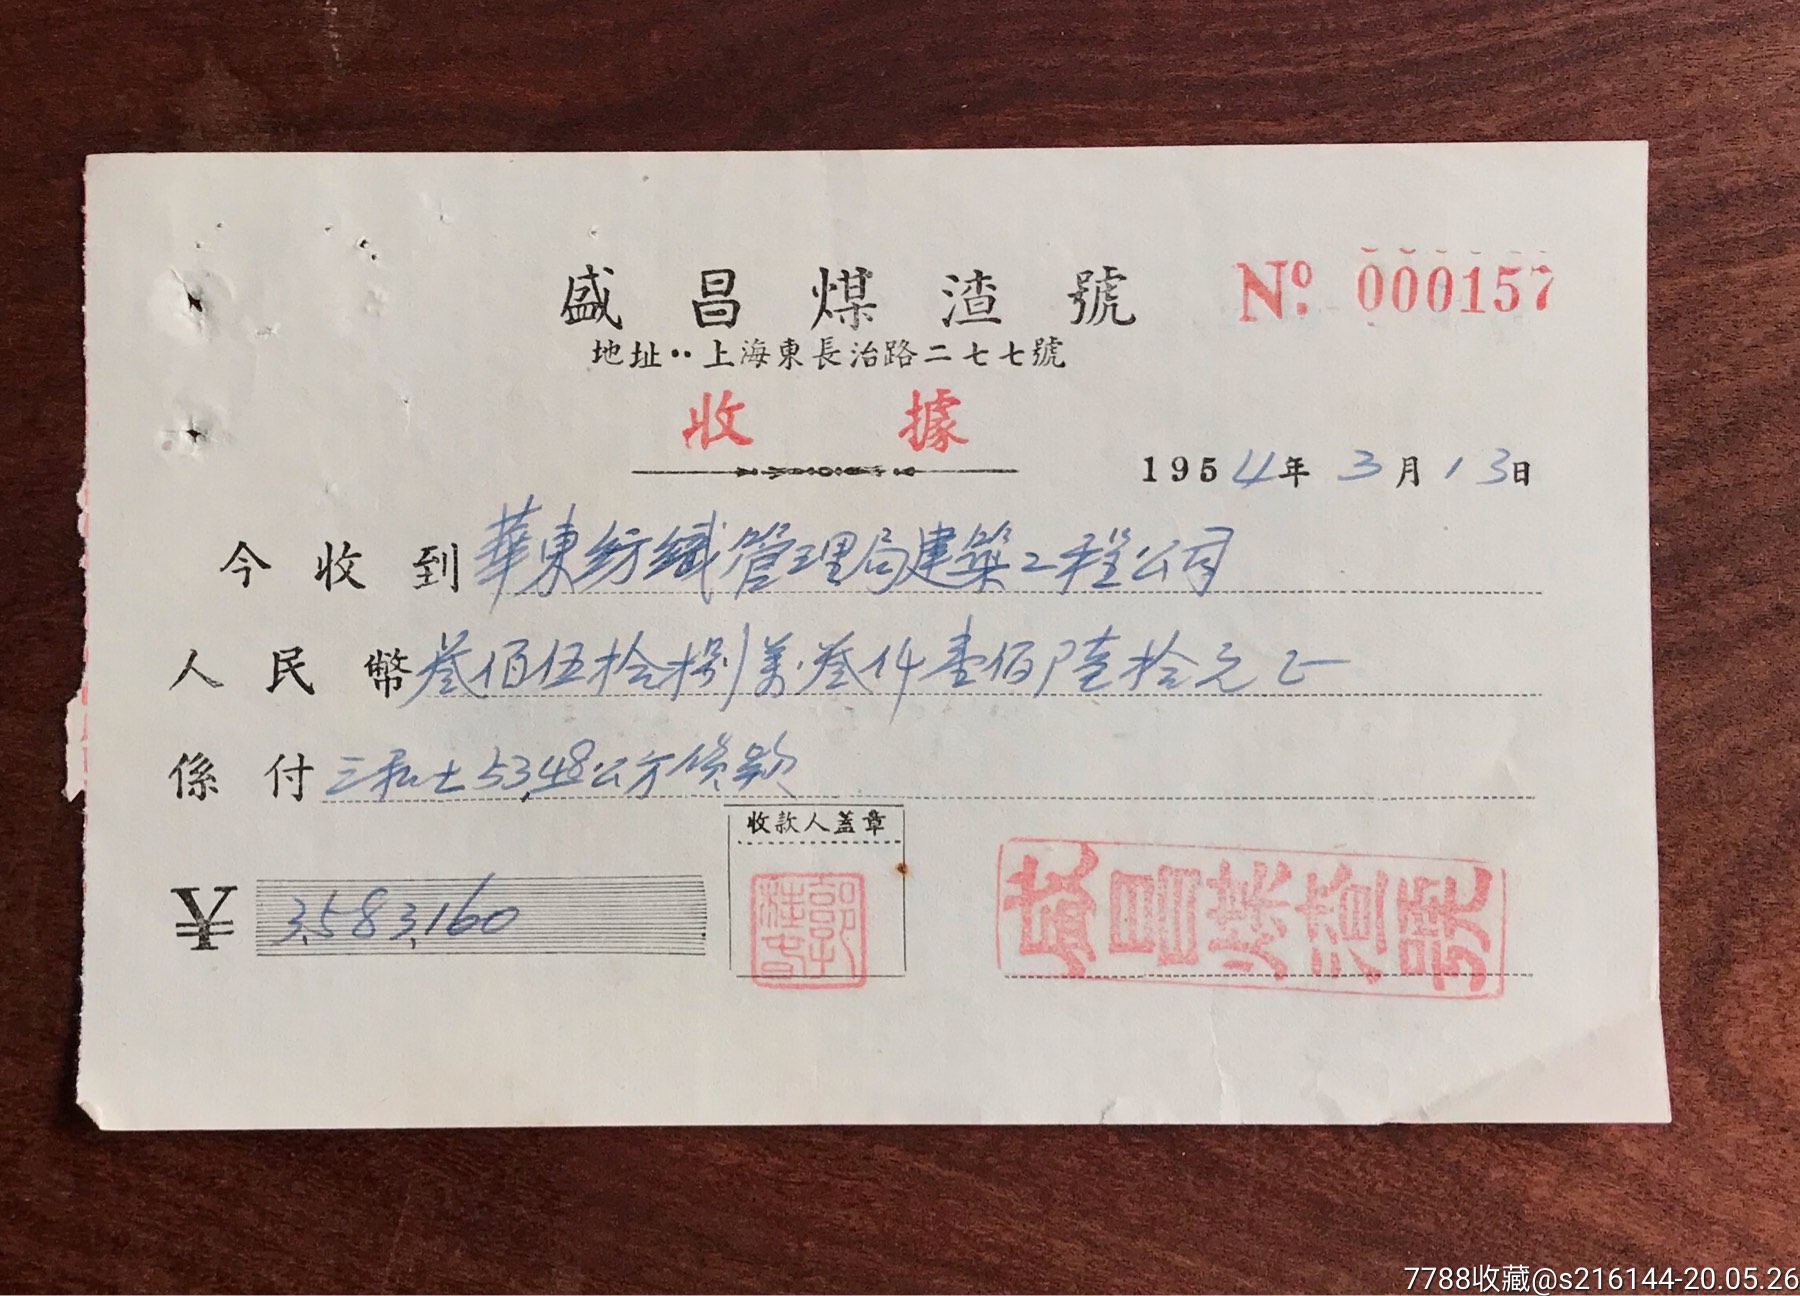 盛昌煤渣號
№ 000157
地址：上海東長治路二七七號
收據
1954年3月13日
今收到華東紡織管理局建築工程公司
人民幣叁佰伍拾捌萬叁仟壹佰陸拾元正
係付三和土53.48公方貨款
收款人蓋章
¥ 3,583,160
盛昌煤渣號
7788收藏@s216144-20.05.26